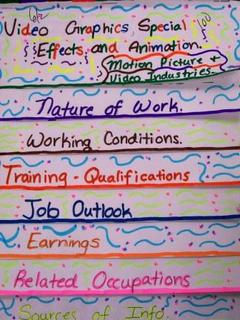 Video Graphics, Special
Effects, and Animation.
Motion Picture +
Video Industries.
Nature of Work.
Working Conditions.
Training - Qualifications
Job Outlook
Earnings
Related Occupations
Sources of Info.